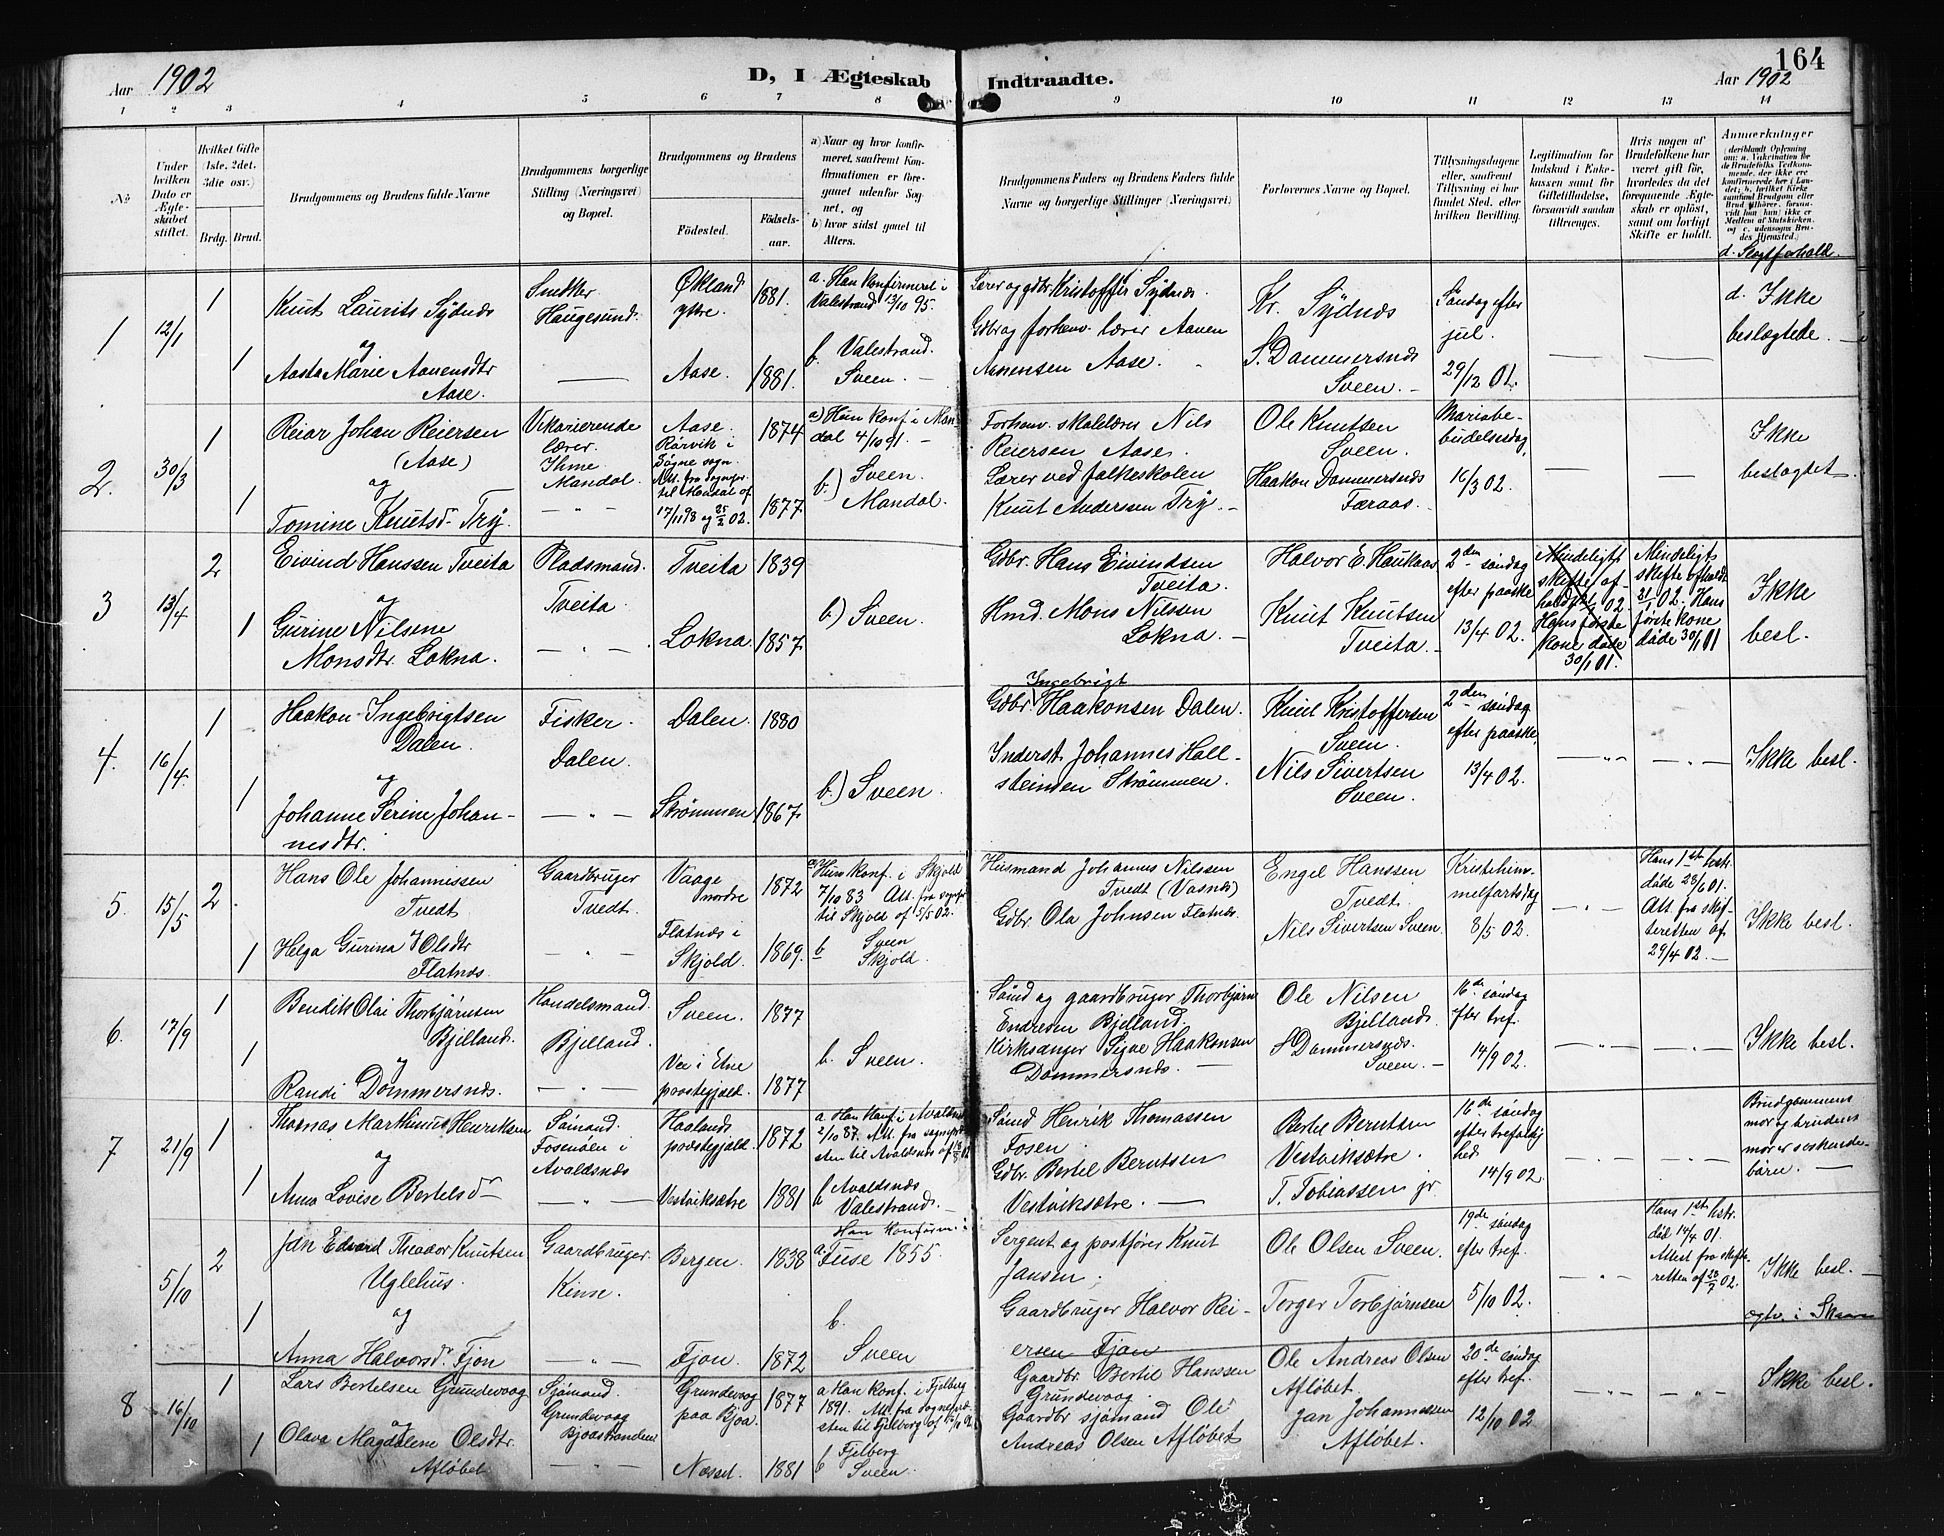 164
Aar 1902
D, I Ægteskab Indtraadte.
Aar 1902
1 2 3 4 5 6 7 8 9 10 11 12 13 14
No
Under hvilken Dato er Ægteskabet stiftet.
Hvilket Gifte (1ste, 2det, 3die osv.)
Brdg. Brud.
Brudgommens og Brudens fulde Navne
Brudgommens borgerlige Stilling (Næringsvei) og Bopæl.
Brudgommens og Brudens
Fødested. Fødselsaar.
a) Naar og hvor konfirmeret, saafremt Konfirmationen er foregaaet udenfor Sognet, og
b) hvor sidst gaaet til Alters.
Brudgommens Faders og Brudens Faders fulde Navne og borgerlige Stillinger (Næringsvei)
Forlovernes Navne og Bopæl.
Tillysningsdagene eller, saafremt Tillysning ei har fundet Sted, efter hvilken Bevilling.
Legitimation for Indskud i Enkekassen samt for Giftetilladelse, forsaavidt saadan tiltrænges.
Hvis nogen af Brudefolkene har været gift før, hvorledes da det foregaaende Ægteskab er opløst, samt om lovligt Skifte er holdt.
Anmærkninger
d. Slegtforhold.
1
12/1
1
Knut Laurits Sydnæs
og
1
Aasta Marie Aanensdtr Aase.
Snedker Haugesund.
Økland ytre. 1881.
Aase. 1881.
a. Han konfirmeret i Valestrand 13/10 95.
b. Valestrand. Sveen.
Lærer og gdbr. Kristoffer Sydnes.
Gdbr og forhenv. lærer Aanen Aanensen Aase.
Kr. Sydnæs
S. Dammersnæs Sveen.
Søndag efter jul. 29/12 01.
d. Ikke beslægtede.
2.
30/3
1
Reiar Johan Reiersen (Aase)
og
1
Tomine Knutsdr Try.
Vikarierende lærer. Ihme Mandal.
Aase. 1874
Rørvik i Søgne sogn. Att. fra sognepr. til Mandal af 17/11 98 og 25/2 02. 1877
a) Hun konf. i Mandal 4/10 91.
b.) Sveen. Mandal.
Forhenv. skolelærer Nils Reiersen Aase.
Lærer ved folkeskolen Knut Andersen Try.
Ole Knutsen Sveen.
Haakon Dommersnæs Færaas.
Mariabebudelsesdag, 16/3 02.
Ikke beslægtet
3
13/4
2
Eivind Hanssen Tveita
og
1
Gurine Nilsine Monsdtr. Lokna.
Pladsmand. Tveita.
Tveita 1839
Lokna. 1857
b.) Sveen.
Gdbr. Hans Eivindsen Tveita.
Hmd. Mons Nilsen Lokna.
Halvor E. Haukaas
Knut Knutsen Tveita.
2den søndag efter paaske 13/4 02.
Mindeligt skifte afholdt 02. Hans første kone døde 30/1 01.
Mindeligt skifte afholdt 31/1 02. Hans første kone døde 30/1 01
Ikke besl.
4.
16/4.
1
Haakon Ingebrigtsen Dalen.
og
1
Johanne Serine Johannesdtr.
Fisker. Dalen.
Dalen. 1880
Strømmen 1867.
b.) Sveen.
Gdbr. Ingebrigt Haakonsen Dalen.
Inderst Johannes Hallsteinsen Strømmen.
Knut Kristoffersen Sveen.
Nils Sivertsen Sveen.
2den søndag efter paaske, 13/4 02.
Ikke besl.
5.
15/5
2.
Hans Ole Johannessen Tvedt
1
Helga Gurina Olsdtr Flatnæs.
Gaardbruger Tvedt.
Vaage nordre 1872
Flatnæs i Skjold. 1869.
a. Hun konf. i Skjold 7/10 83 Att. fra sognepr. til Skjold af 5/5 02.
b Sveen Skjold.
Husmand Johannes Nilssen Tvedt (Vasnæs)
Gdbr. Ola Johnsen Flatnæs.
Engel Hanssen Tvedt.
Nils Sivertsen Sveen.
Kristi himmelfartsdag 8/5 02.
Hans 1ste hstr. døde 28/6 01. Att. fra skifteretten af 29/4 02.
Ikke besl.
6.
17/9
1
Bendik Olai Thorbjørnsen Bjelland.
og
1
Randi Dommersnæs.
Handelsmand. Bjelland.
Sveen. 1877
Vee i Etne præstegjæld. 1877
b. Sveen.
Sømd og gaardbruger Thorbjørn Endresen Bjelland.
Kirksanger Sjove Haakonsen Dommersnæs.
Ole Nilsen Bjelland.
S Dommersnæs. Sveen.
16de søndag efter tref. 14/9 02.
Ikke besl.
7
21/9
1
Thomas Markinus Henriksen
og
1
Anna Lovise Bertelsdr
Sømand. Fosenøen i Avaldsnæs
Haalands præstegjæld. 1872
Vestviksætre 1881
a Han konf. i Avaldsnæs 2/10 87. Att. fra sognepræsten til Avaldsnæs af
b Avaldsnæs Valestrand.
Sømd Henrik Thomassen Fosen
Gdbr. Bertel Berntsen Vestviksætre.
Bertel Berntsen Vestviksætre.
T. Tobiassen jr.
16de søndag efter trefoldighed 14/9 02.
Brudgommens mor og brudens mor er søskendebarn.
5/10
2
Jan Edvard Theodor Knutsen Uglehus.
og
1
Anna Halvorsdr Fjon
Gaardbruger. Kinne.
Bergen. 1838
Fjon. 1872
a. Han konfirm. i Fuse 1855.
b. Sveen
Sergent og postfører Knut Jansen.
Gaardbruger Halvor Reiersen Fjon
Ole Olsen Sveen.
Torger Torbjørnsen
19de søndag efter tref. 5/10 02.
Hans 1ste hstr. død 14/4 01. Attest fra skifteretten af 02.
Ikke besl.
8
16/10
1
Lars Bertelsen Grundevaag
og
1
Olava Magdalene Olsdtr. Afløbet
Sjømand. Grundevaag Bjoastranden
Grundevaag paa Bjoa. 1877
Næsset. 1881
a Han konf. i Fjelberg 1891. Att. fra sognepræsten til Fjelberg af
b Fjelberg Sveen.
Gaardbr. Bertel Hanssen Grundevaag.
Gaardbr sjømand Ole Andreas Olsen Afløbet
Ole Andreas Olsen Afløbet.
Jan Johannessen Afløbet.
20de søndag efter tref. 12/10 02
Ikke besl.